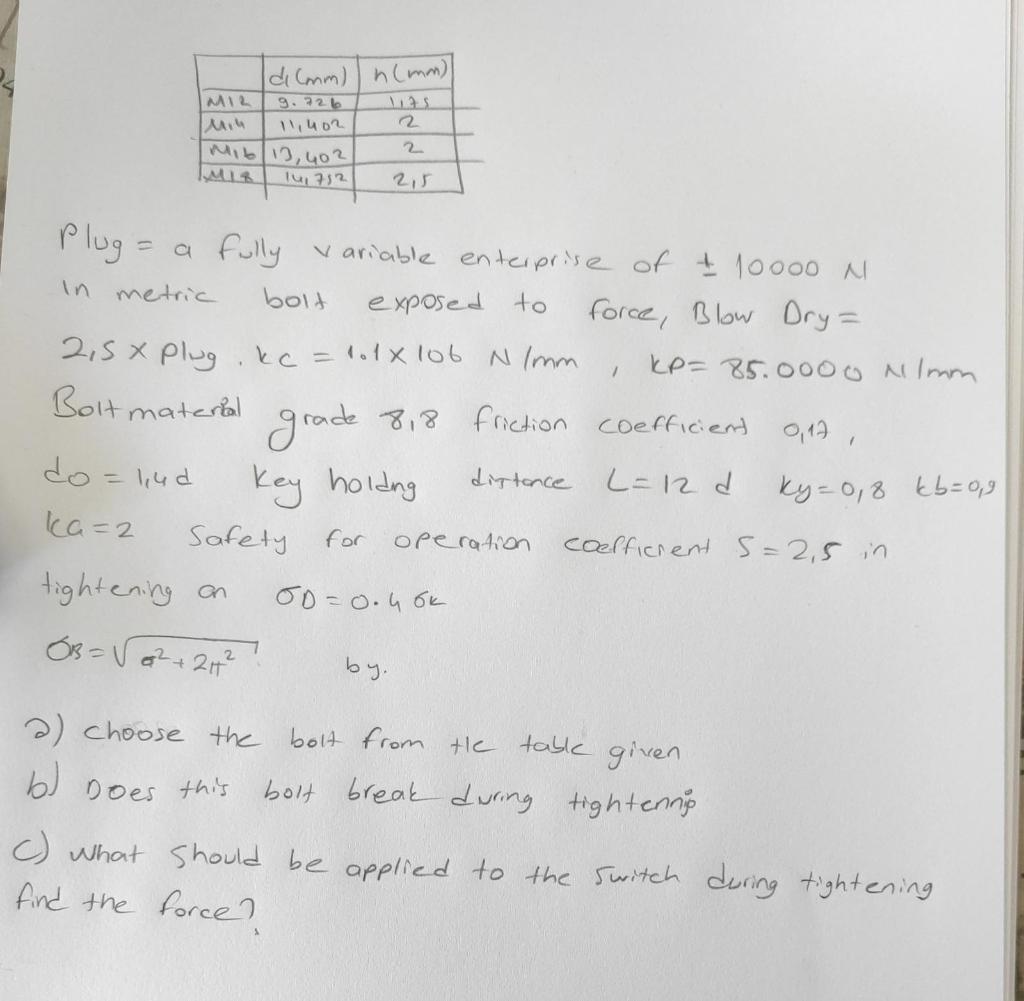 d1(mm) h(mm)
M12 9.726 1,75
M14 11,402 2
M16 13,402 2
M18 14,752 2,5
Plug = a fully variable enterprise of ± 10000 N
In metric bolt exposed to force, Blow Dry =
2,5 x plug. kc = 1.1 x 106 N/mm, kp= 85.0000 N/mm
Bolt material grade 8,8 friction coefficient 0,17,
do = 1,4d Key holdng distance L=12 d ky=0,8 kb=0,9
ka=2 Safety for operation coefficient S=2,5 in
tightening on σD=0.4 σk
σB=√σ²+2π² by.
a) choose the bolt from the table given
b) Does this bolt break during tightening
c) What should be applied to the switch during tightening
find the force?